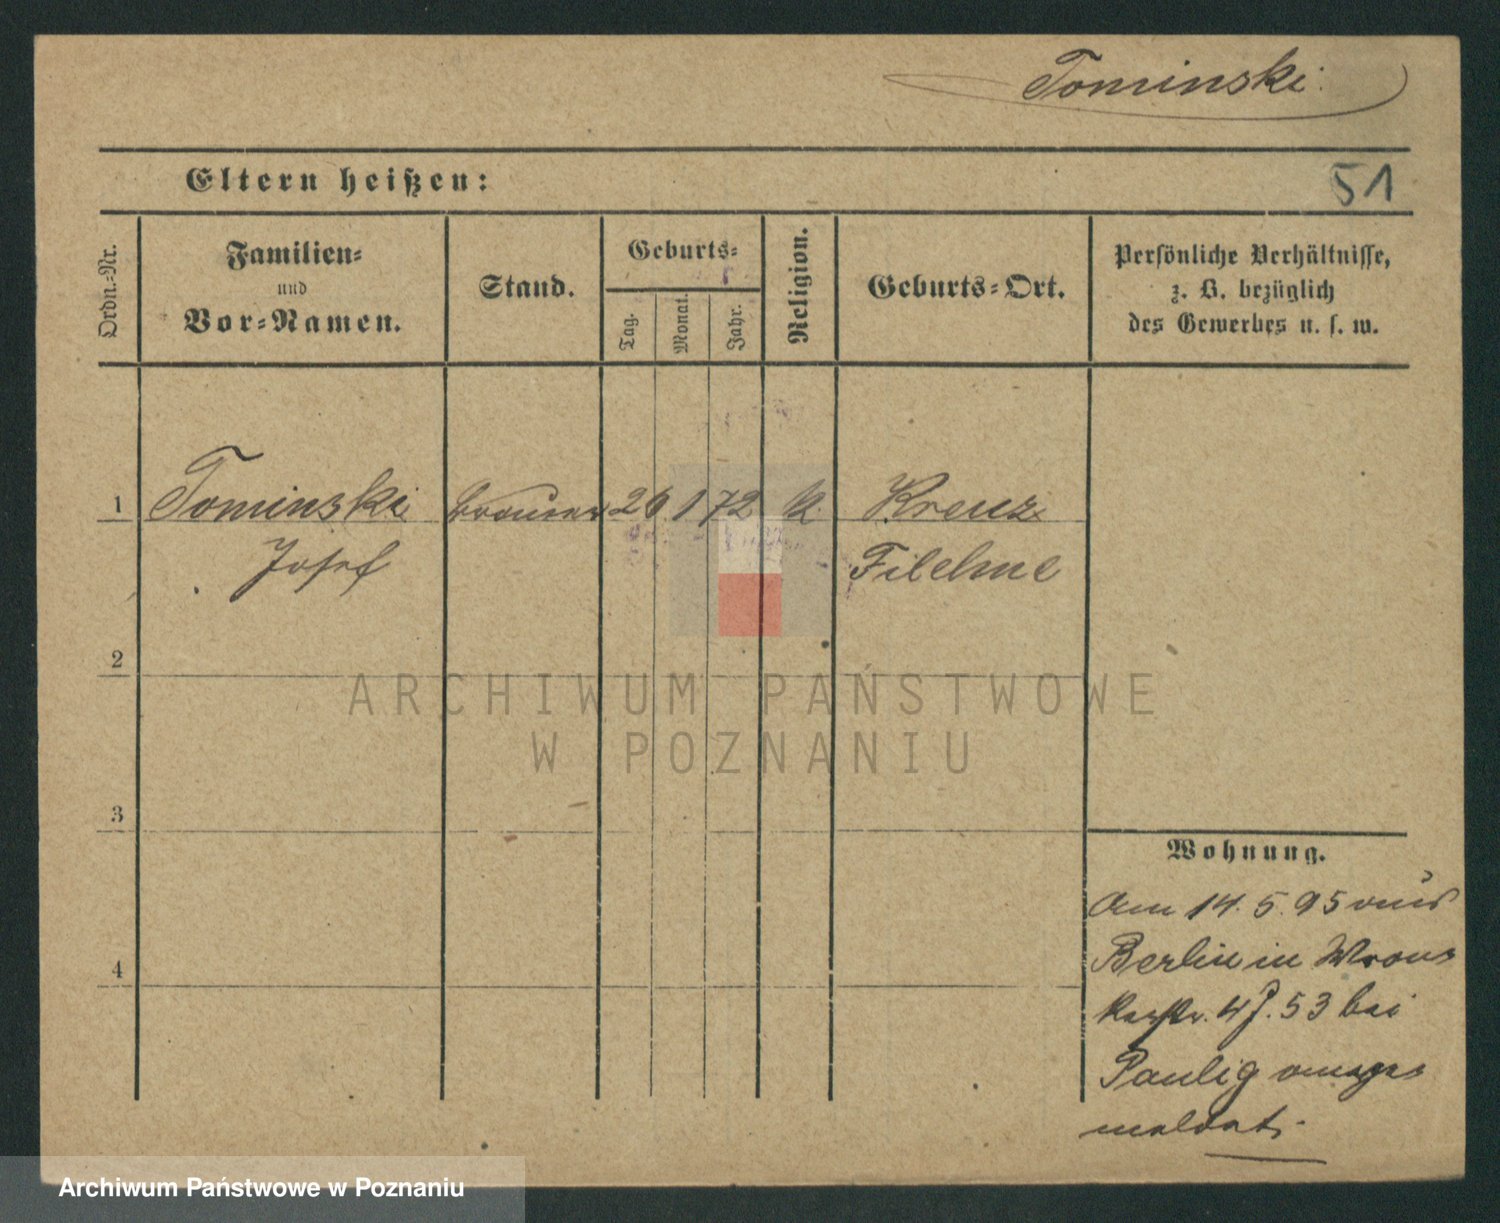 Tominski.
Eltern heißen:
51
Ordn.-Nr.
Familien-
und
Vor-Namen.
Stand.
Geburts-
Tag.
Monat.
Jahr.
Religion.
Geburts-Ort.
Persönliche Verhältnisse,
z. B. bezüglich
des Gewerbes u. s. w.
1 Tominski Brauer 26 1 72 k. Kreuz
Josef Filehne
2
3
4
ARCHIWUM PAŃSTWOWE
W POZNANIU
Wohnung.
Am 14. 5. 95 aus
Berlin in Wron
kerstr. 4 J. 53 bei
Paulig ange
meldet.
Archiwum Państwowe w Poznaniu